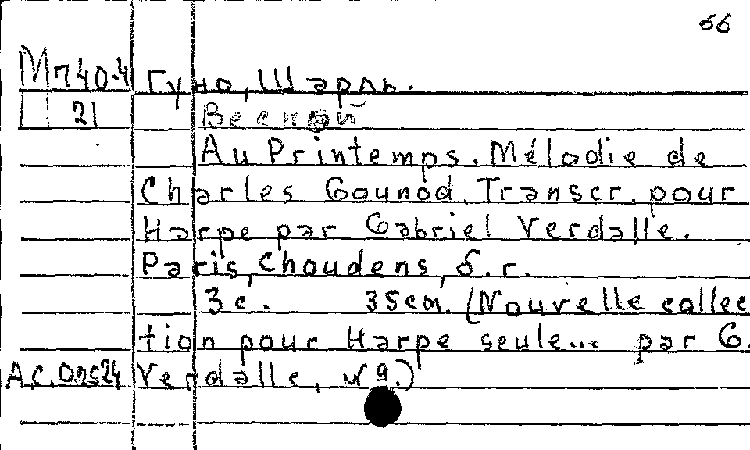 56
Мп40-4 Гуно, Шарль.
21 Весной
Au Printemps. Mélodie de
Charles Gounod. Transcr. pour
Harpe par Gabriel Verdalle.
Paris, Choudens, б. г.
3 с. 35 см. (Nouvelle collec
tion pour Harpe seule... par G.
Verdalle, №9.)